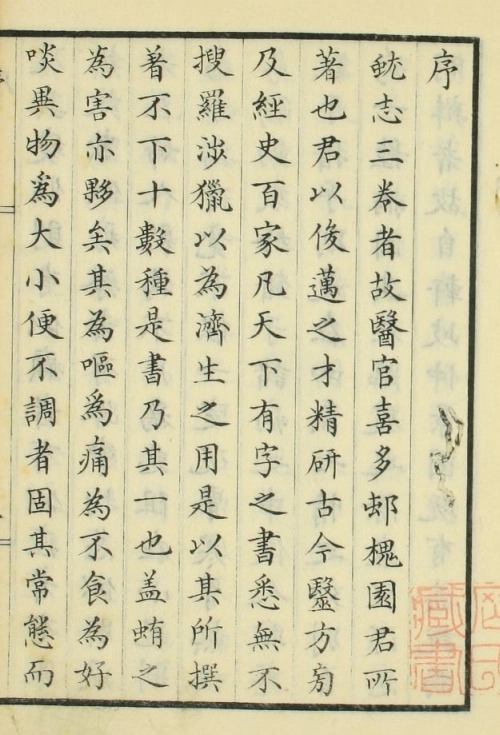 序
蚘志三卷者故醫官喜多邨槐園君所
著也君以俊邁之才精研古今毉方旁
及經史百家凡天下有字之書悉無不
搜羅涉獵以為濟生之用是以其所撰
著不下十數種是書乃其一也盖蛕之
為害亦夥矣其為嘔為痛為不食為好
啖異物爲大小便不調者固其常態而
藏書